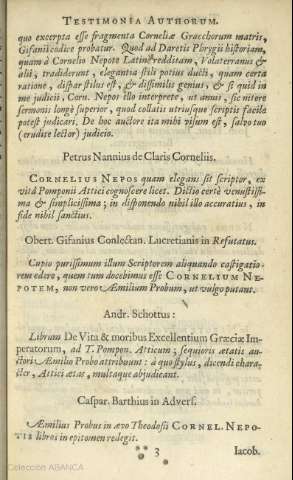 TESTIMONIA AUTHORUM.
quo excerpta esse fragmenta Corneliæ Gracchorum matris,
Gifanii codice probatur. Quod ad Daretis Phrygii historiam,
quam à Cornelio Nepote Latinè redditam, Volaterranus &
alii, tradiderunt, elegantia stili potius ducti, quam certa
ratione, dispar stilus est, & dissimilis genius, & si quid in
me judicii, Corn. Nepo illo interprete, ut annui, sic nitere
sermonis longè superior, quod collatis utriusque scriptis facile
potest judicari. De hoc auctore ita mihi visum est, salvo tuo
(erudite lector) judicio.
Petrus Nannius de Claris Corneliis.
CORNELIUS NEPOS quam elegans sit scriptor, ex
vitâ Pomponii Attici cognoscere licet. Dictio certè venustissi-
ma & simplicissima; in disponendo nihil illo accuratius, in
fide nihil sanctius.
Obert. Gifanius Conlectan. Lucretianis in Refutatus.
Cupio purissimum illum Scriptorem aliquando castigatio-
rem edere, quem tum docebimus esse CORNELIUM NE-
POTEM, non vero Æmilium Probum, ut vulgo putant.
Andr. Schottus:
Librum De Vita & moribus Excellentium Græciæ Im-
peratorum, ad T. Pompon. Atticum; sequioris ætatis au-
ctori Æmilio Probo attribuunt: à quo stylus, dicendi chara-
cter, Attici ætas, multaque abjudicant.
Caspar. Barthius in Advers.
Æmilius Probus in ævo Theodosii CORNEL. NEPO-
TIS libros in epitomen redegit.
3
Iacob.
Colección ABANCA